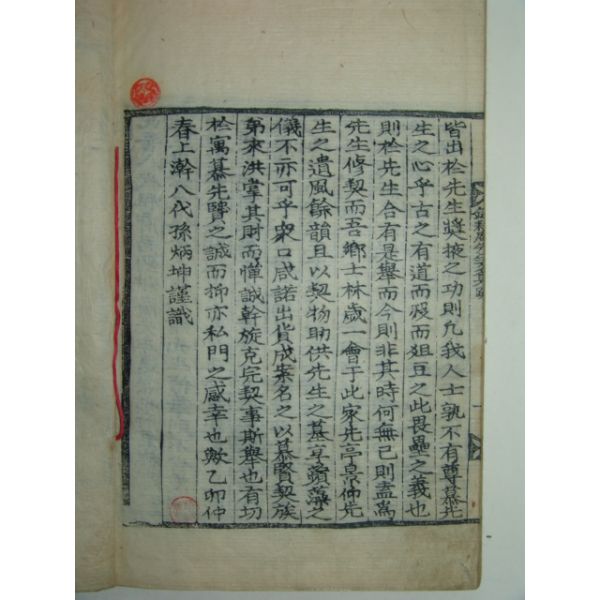 皆出於先生奬掖之功則凡我人士孰不有尊慕先
生之心乎古之有道而歿而俎豆之此畏壘之義也
則於先生合有是舉而今則非其時何無已則盍爲
先生修契而吾鄕士林歲一會于此家先亭景仰先
生之遺風餘韻且以契物助供先生之墓享蘋藻之
儀不亦可乎衆口咸諾出貲成案名之以慕賢契族
弟來洪掌其財而惲誠幹旋克完契事斯舉也有切
於寓慕先賢之誠而抑亦私門之感幸也歟乙卯仲
春上澣八代孫炳坤謹識